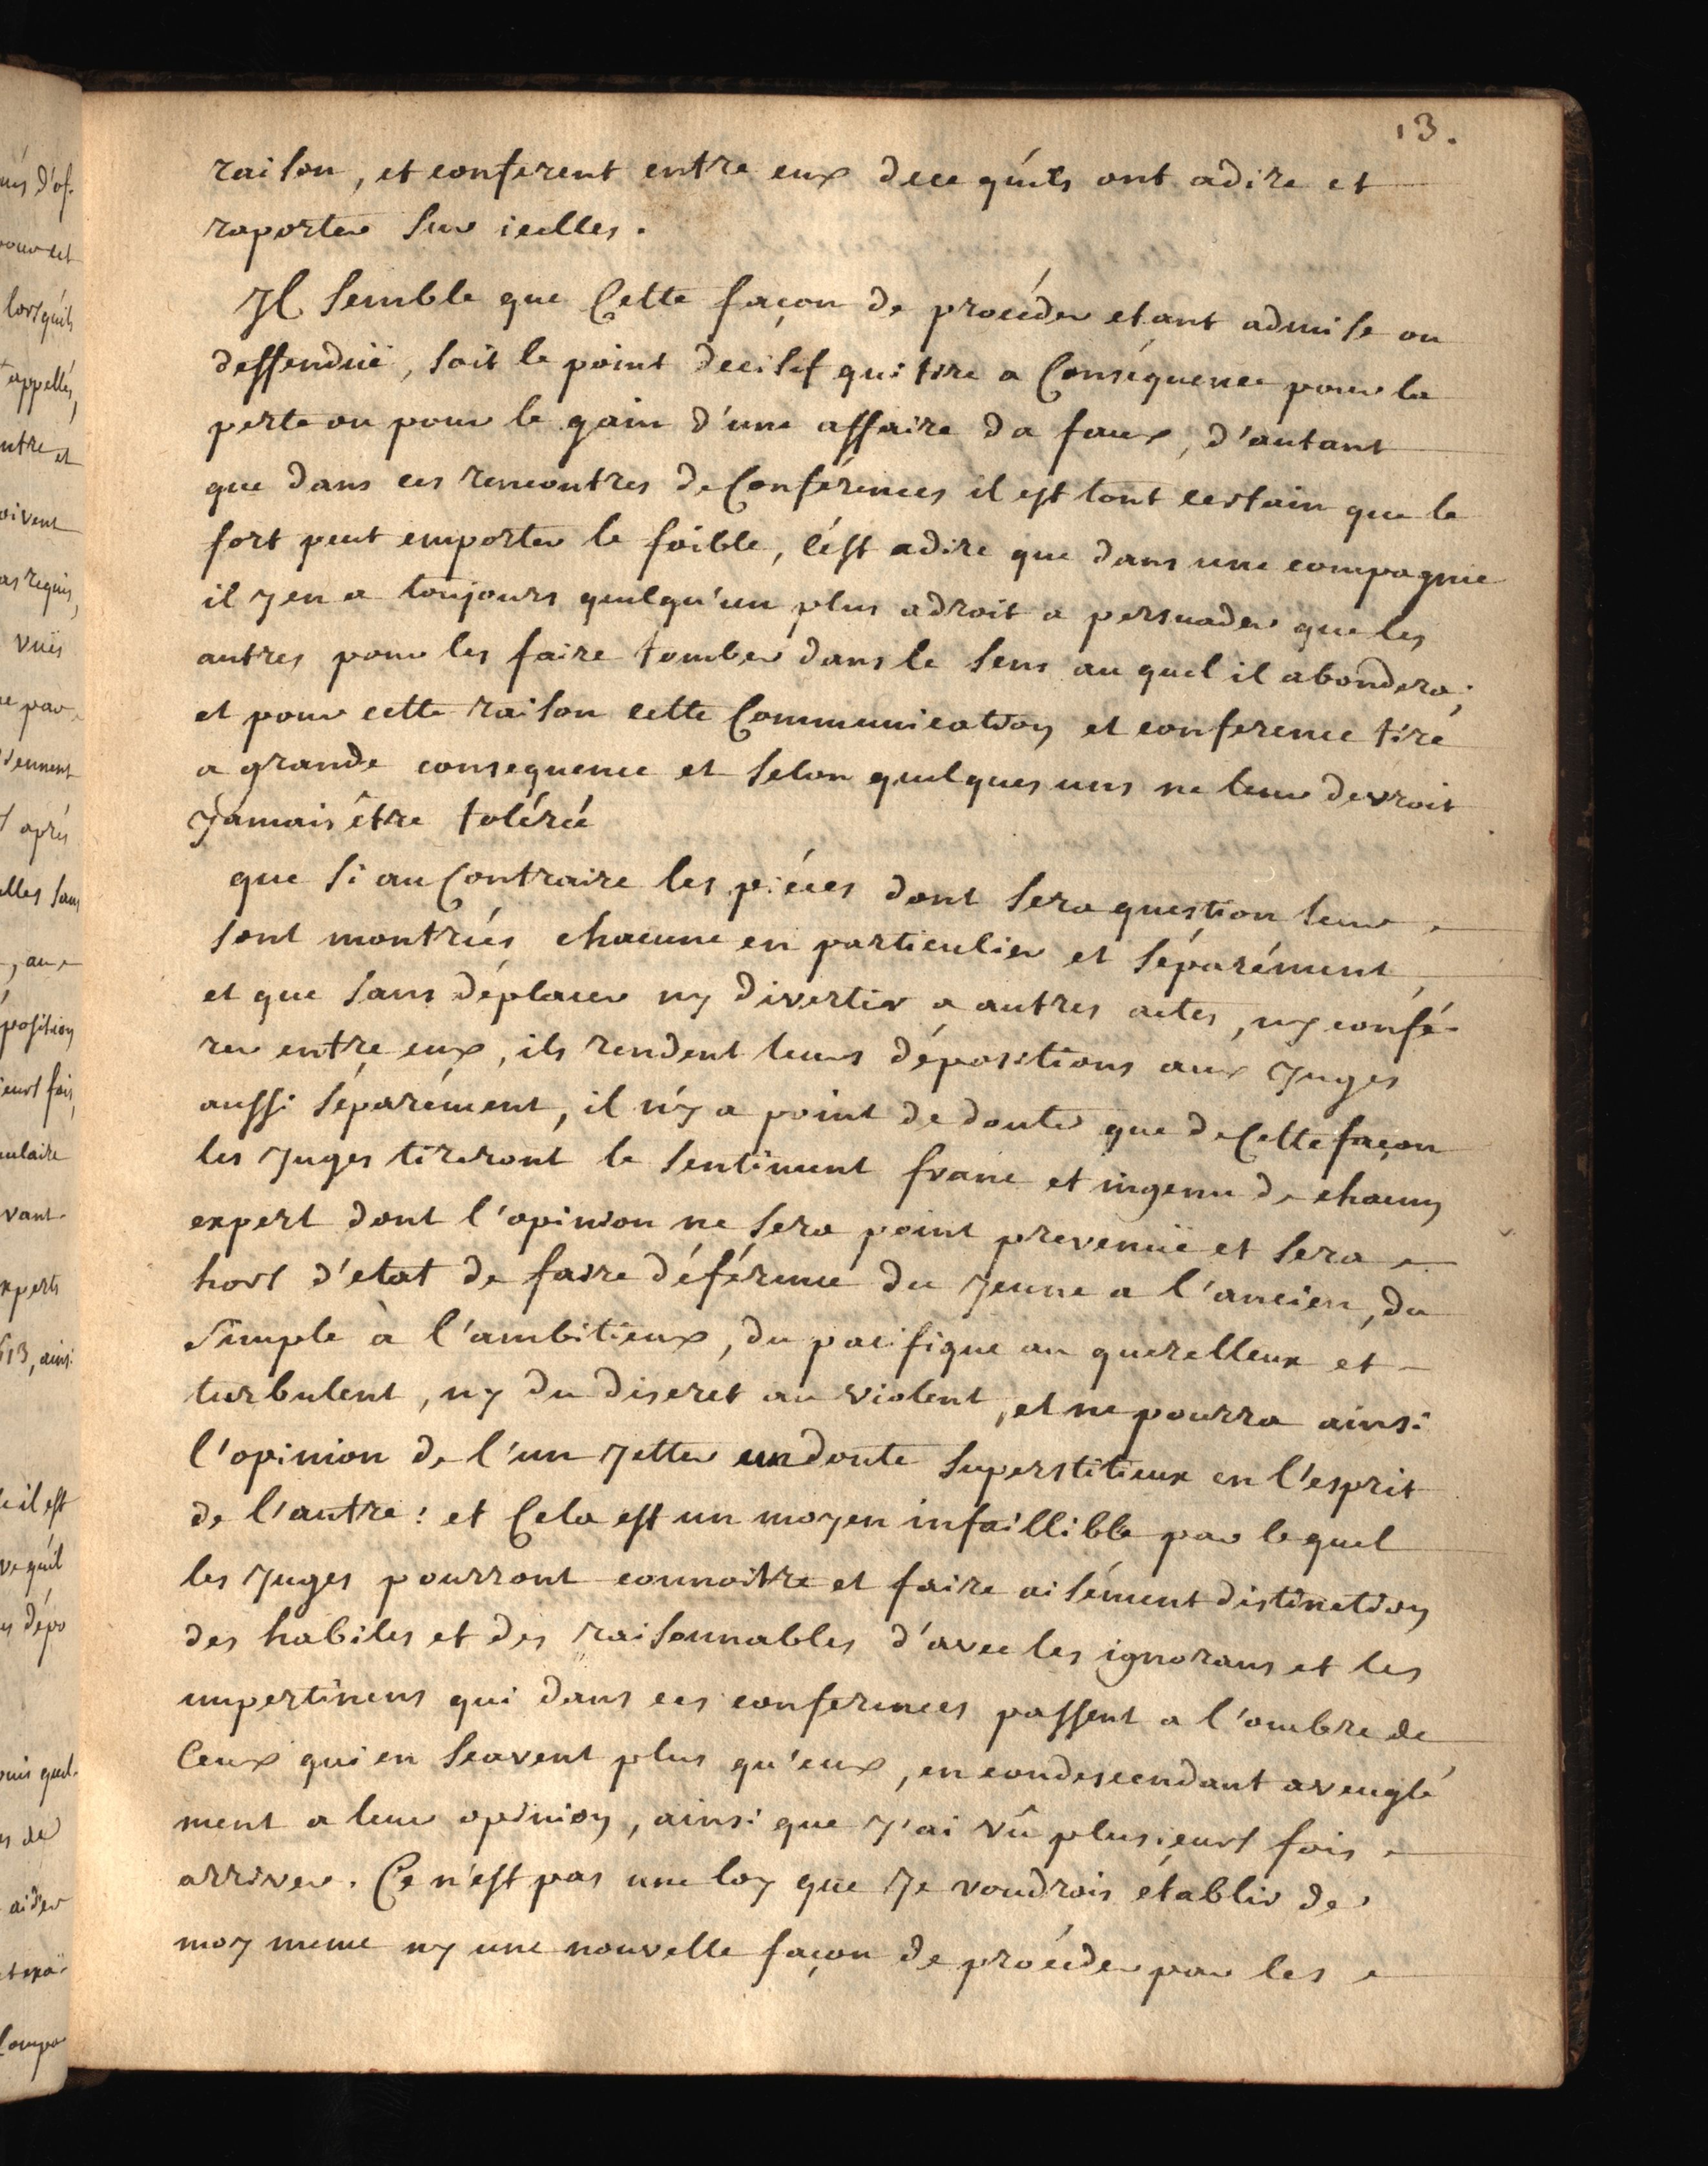 13.
raison, et conferent entre eux dece qu'ils ont adire et
raporter sur icelles.
Jl semble que Cette façon de procéder etant admise ou
deffenduë, soit le point decisif qui tire a Conséquence pour la
perte ou pour le gain d'une affaire da faux, d'autant
que dans ces rencontres de Conférences il est tout certain que le
fort peut emporter le foible, c'ést adire que dans une compagnie
il y en a toujours quelqu'un plus adroit a persuader que les
autres pour les faire tomber dans le sens au quel il abondera;
et pour cette raison cette Communication et conference tire
a grande consequence et selon quelques uns ne leur devroit
Jamais être tolérée
que si au Contraire les piéces dont sera question leur
sont montrées chacune en particulier et séparément
et que sans déplacer ny divertir a autres actes, ny confé-
rer entre eux, ils rendent leurs dépositions aux Juges
aussi séparément, il n'y a point de doute que de Cette façon
les Juges tireront le sentiment franc et ingenu de chacun
expert dont l'opinion ne sera point prevenuë et sera
hors d'etat de faire déférence du Jeune a l'ancien, du
simple à l'ambitieux, du pacifique au querelleux et
turbulent, ny du discret au violent, et ne pourra ainsi
l'opinion de l'un Jetter un doute superstitieux en l'esprit
de l'autre: et Cela est un moyen infaillible par lequel
les Juges pourront connoitre et faire aisément distinction
des habiles et des raisonnables d'avec les ignorans et les
impertinens qui dans ces conferences passent a l'ombre de
Ceux qui en scavent plus qu'eux, en condescendant aveuglé
ment a leur opinion, ainsi que J'ai vû plusieurs fois
arriver. Ce n'est pas une loy que Je voudrois établir de
moy meme ny une nouvelle façon de procéder par les